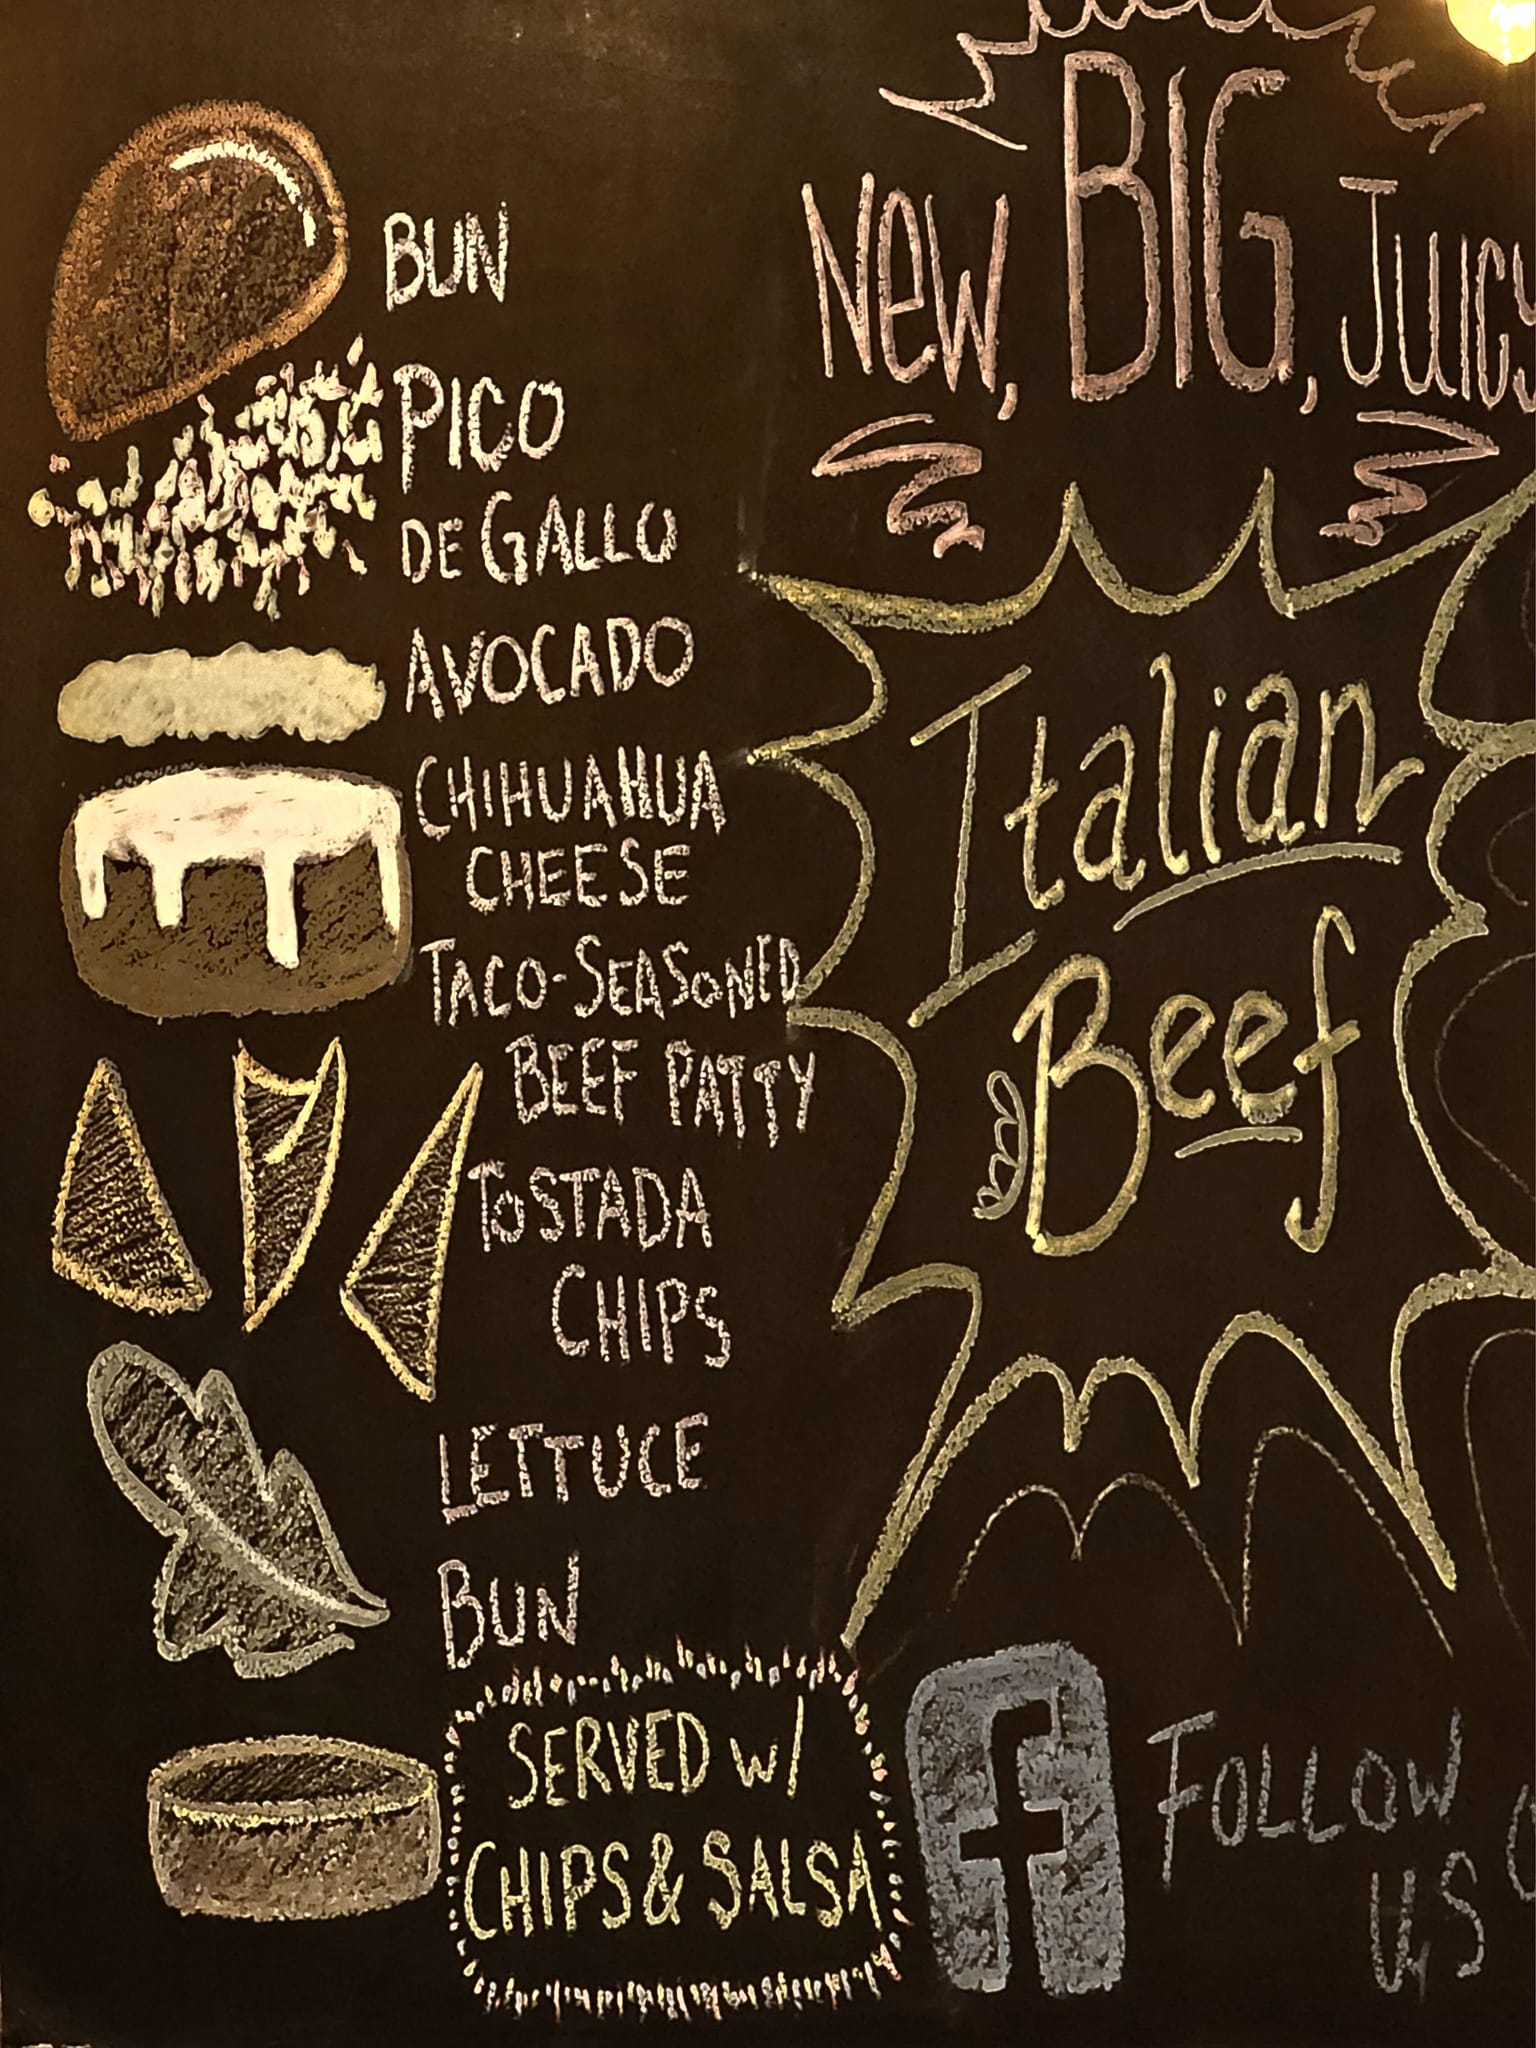 BUN
PICO
DE GALLO
AVOCADO
CHIHUAHUA
CHEESE
TACO-SEASONED
BEEF PATTY
TOSTADA
CHIPS
LETTUCE
BUN
SERVED w/
CHIPS & SALSA
New, BIG, Juicy
Italian
Beef
f
FOLLOW
US